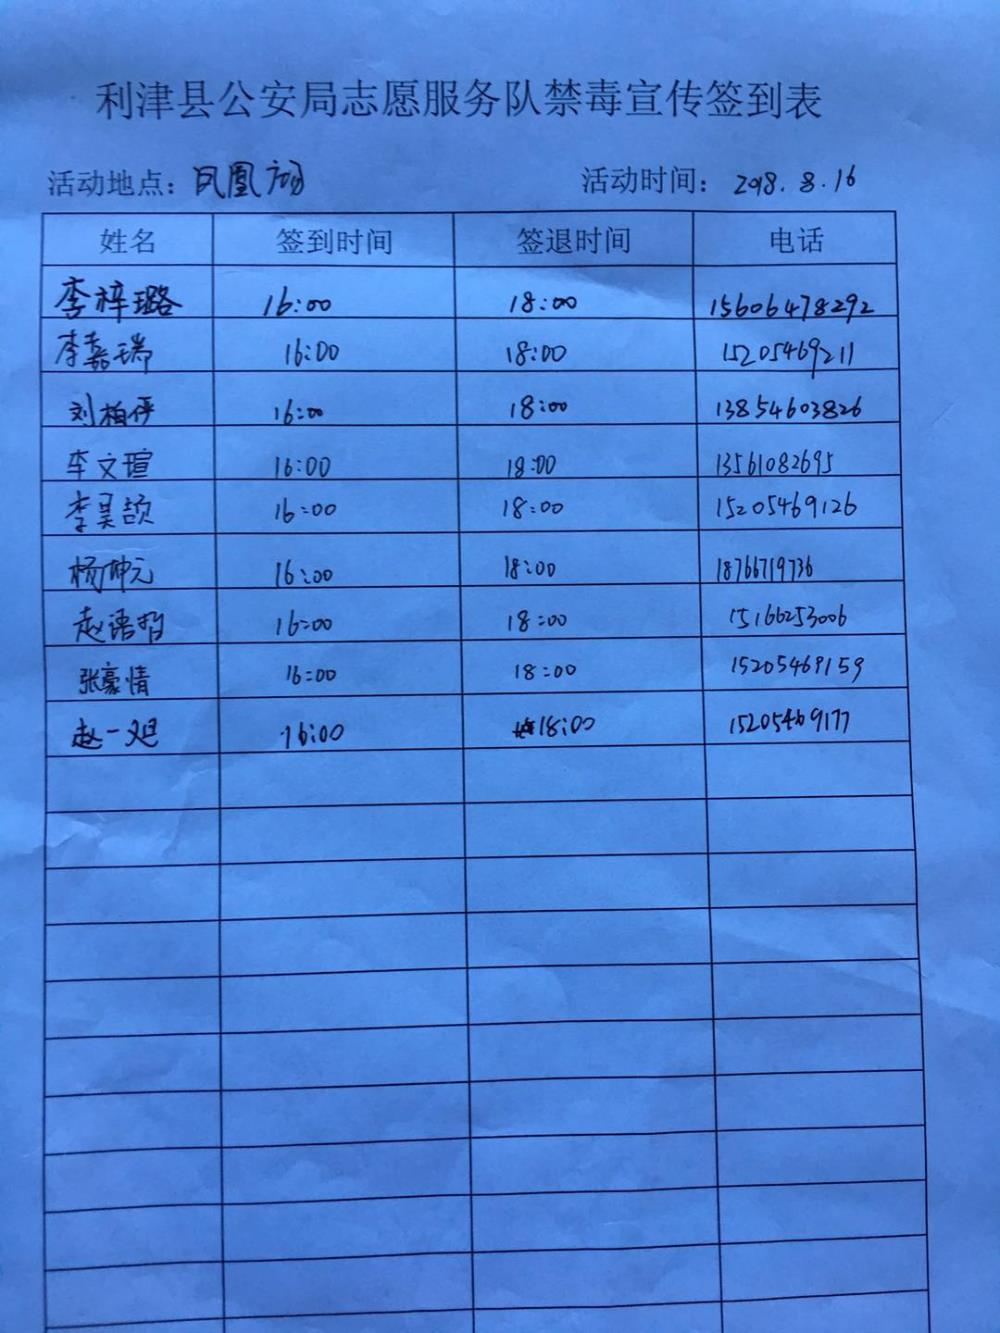 利津县公安局志愿服务队禁毒宣传签到表
活动地点：凤凰广场 活动时间：2018.8.16
姓名 签到时间 签退时间 电话
李梓璐 16:00 18:00 15606478292
李嘉瑞 16:00 18:00 15205469211
刘柏伻 16:00 18:00 13854603826
李文瑄 16:00 18:00 13561082695
李昊颉 16:00 18:00 15205469126
杨坤元 16:00 18:00 18766719736
赵语哲 16:00 18:00 15166253006
张豪情 16:00 18:00 15205469159
赵一 16:00 18:00 15205469177